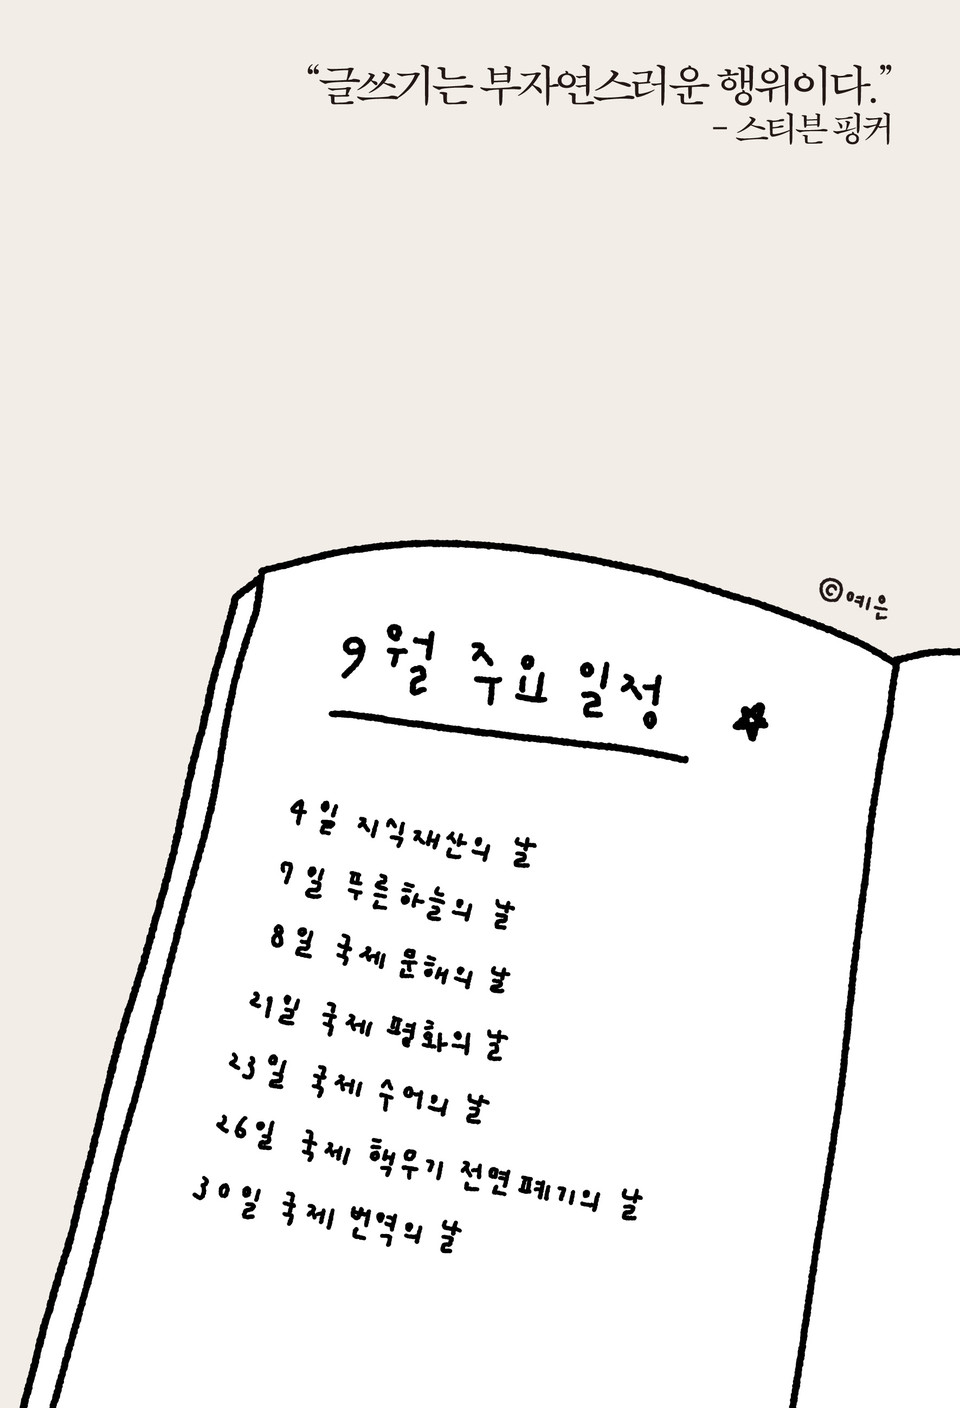 “글쓰기는 부자연스러운 행위이다.”
- 스티븐 핑커
ⓒ예은
9월 주요 일정
4일 지식재산의 날
7일 푸른하늘의 날
8일 국제 문해의 날
21일 국제 평화의 날
23일 국제 수어의 날
26일 국제 핵무기 전면폐기의 날
30일 국제 번역의 날